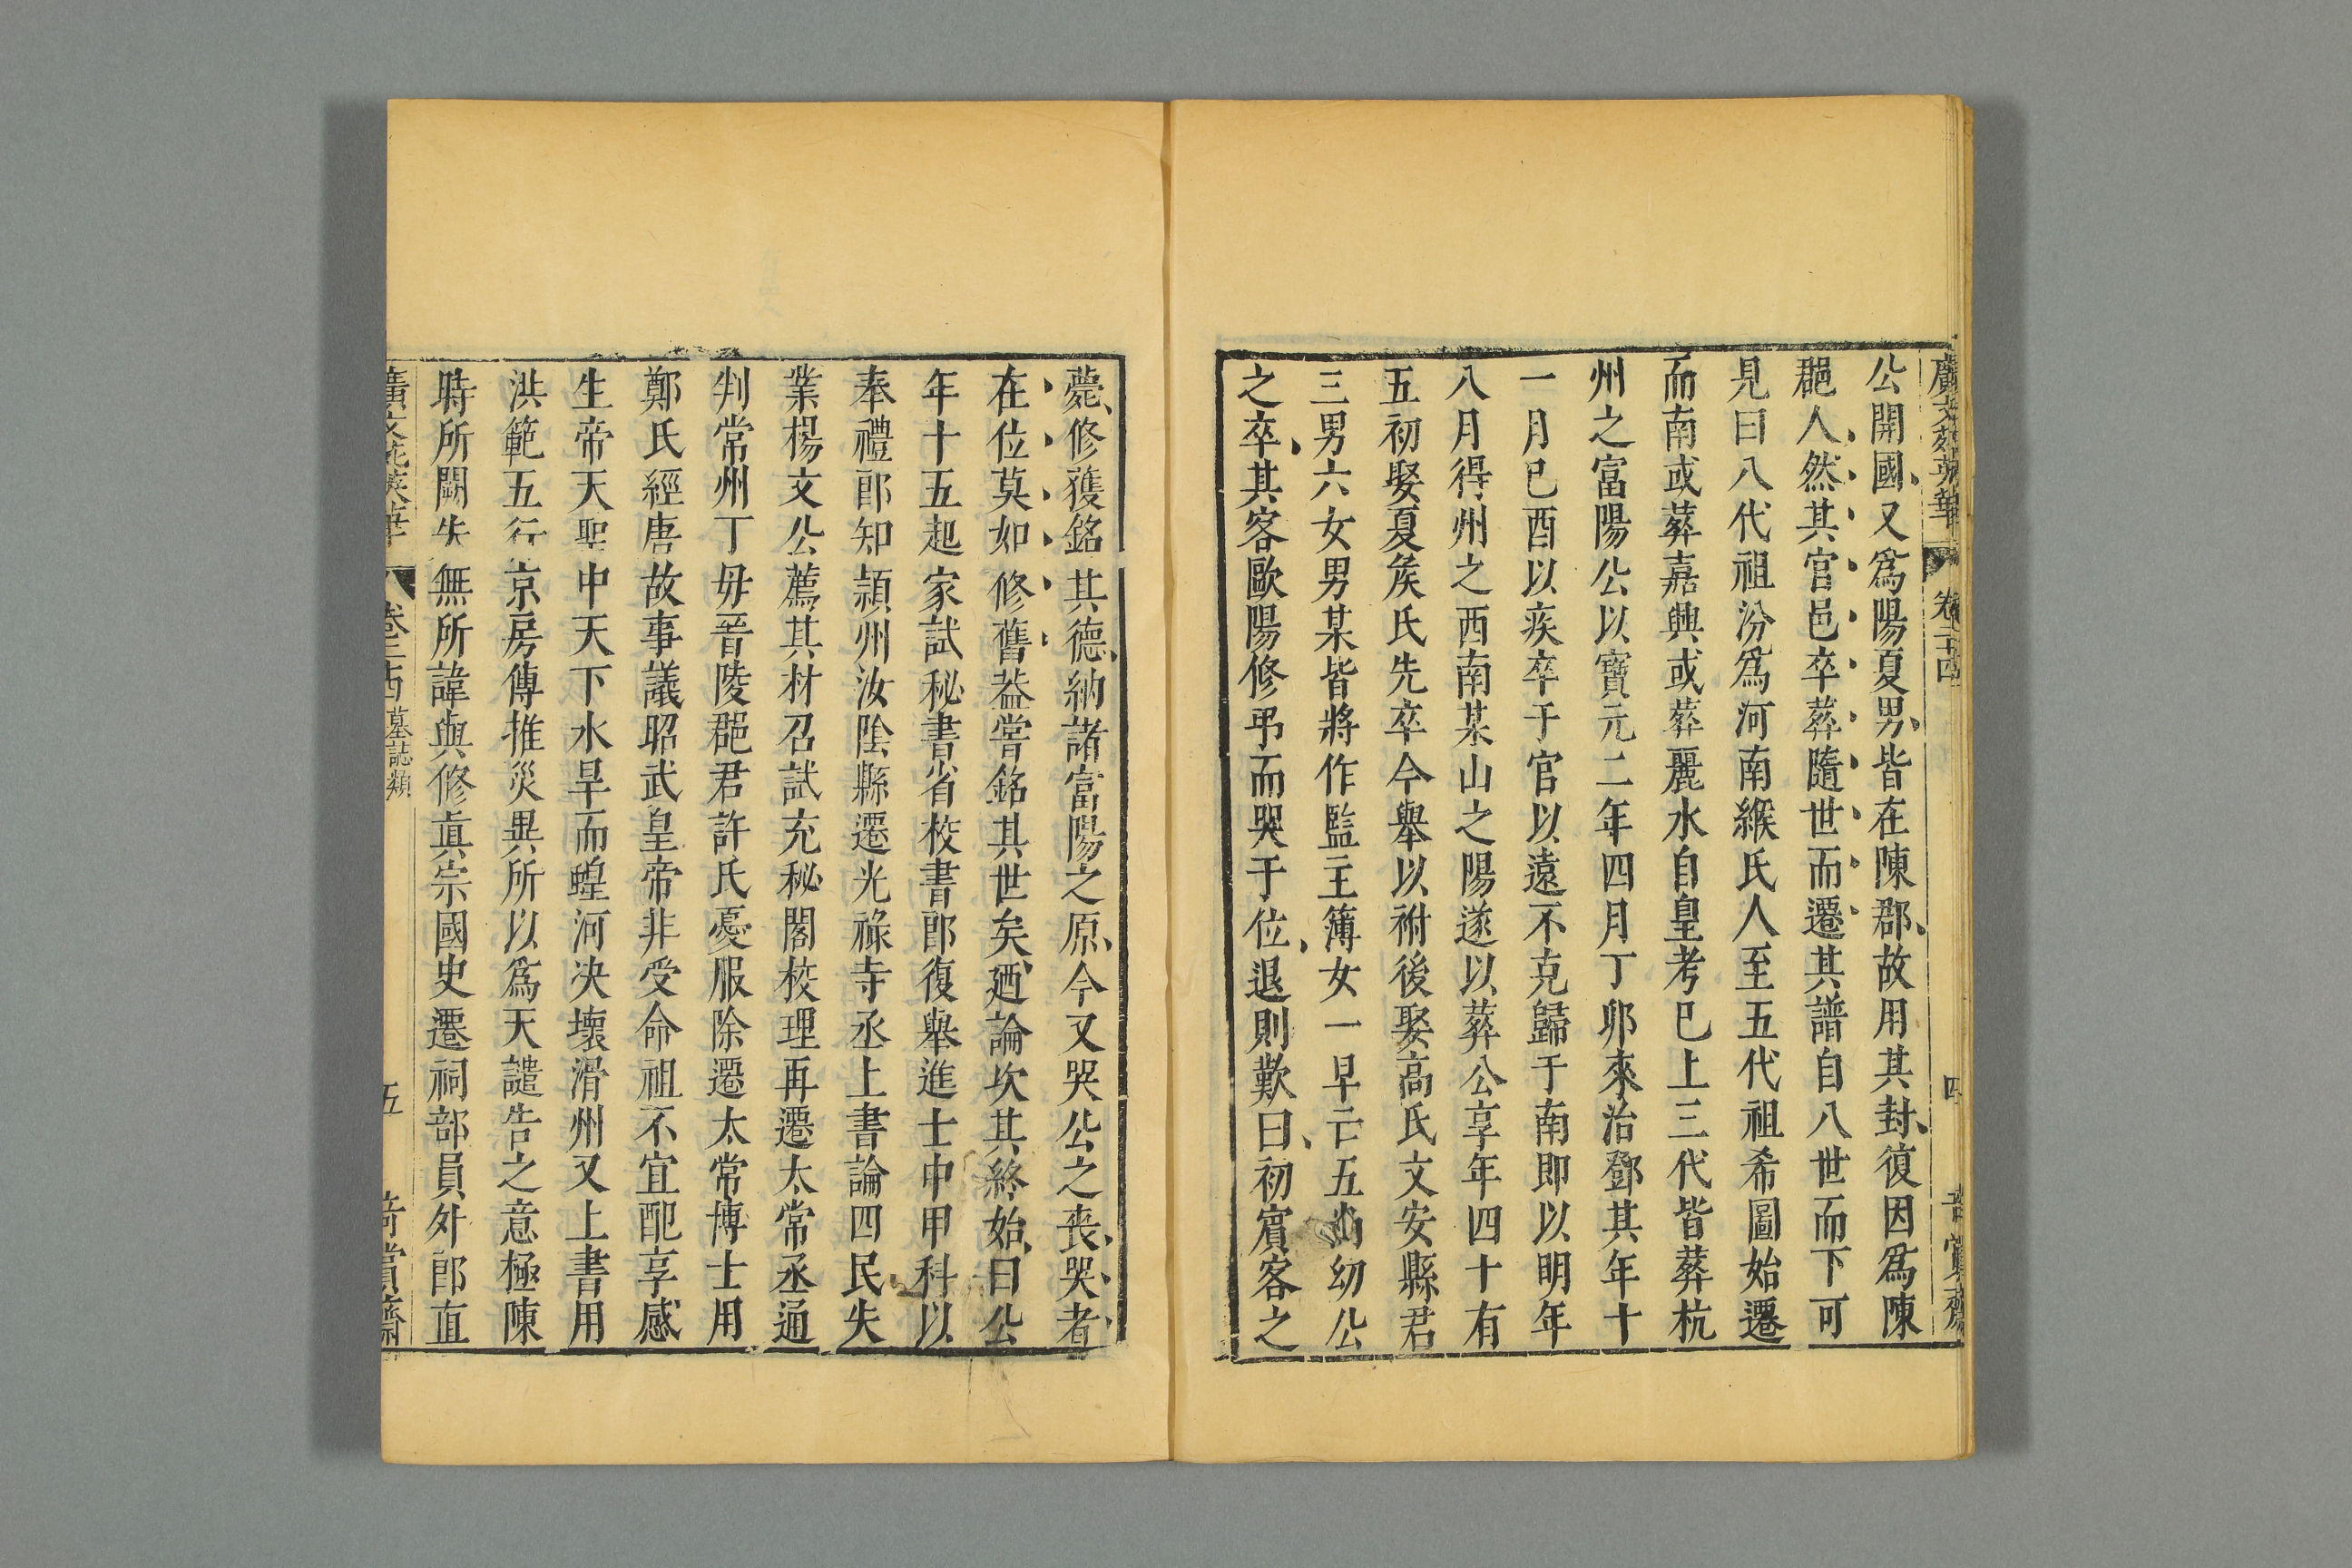 廣文苑英華 卷二十四 四 奇賞齋
公開國又爲陽夏男皆在陳郡故用其封復因爲陳
郡人然其官邑卒葬隨世而遷其譜自八世而下可
見曰八代祖汾爲河南緱氏人至五代祖希圖始遷
而南或葬嘉興或葬麗水自皇考已上三代皆葬杭
州之富陽公以寶元二年四月丁卯來治鄧其年十
一月已酉以疾卒于官以遠不克歸于南即以明年
八月得州之西南某山之陽遂以葬公享年四十有
五初娶夏矦氏先卒今舉以祔後娶高氏文安縣君
三男六女男某皆將作監主簿女一早亡五尚幼公
之卒其客歐陽修弔而哭于位退則歎曰初賓客之
薨修獲銘其德納諸富陽之原今又哭公之喪哭者
在位莫如修舊葢嘗銘其世矣廼論次其終始曰公
年十五起家試秘書省校書郎復舉進士中甲科以
奉禮郎知潁州汝陰縣遷光祿寺丞上書論四民失
業楊文公薦其材召試充秘閣校理再遷太常丞通
判常州丁母晉陵郡君許氏憂服除遷太常博士用
鄭氏經唐故事議昭武皇帝非受命祖不宜配享感
生帝天聖中天下水旱而蝗河决壞滑州又上書用
洪範五行京房傳推災異所以爲天譴告之意極陳
時所闕失無所諱與修眞宗國史遷祠部員外郎直
廣文苑英華 卷二十四 墓誌類 五 奇賞齋